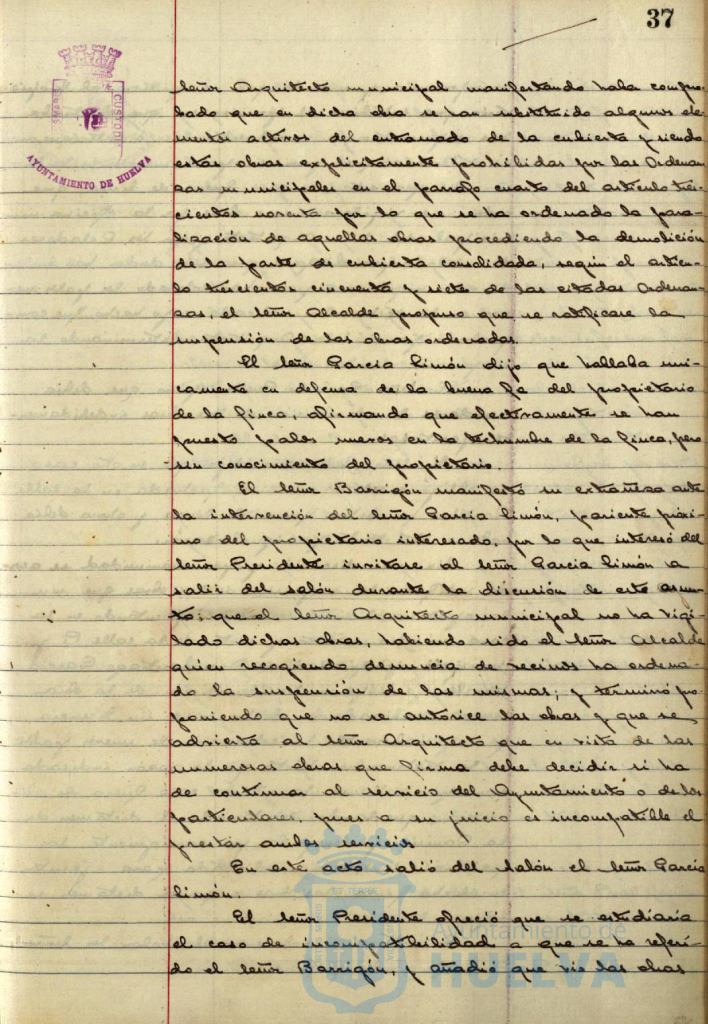 37
CUSTODIA
AYUNTAMIENTO DE HUELVA
señor Arquitecto municipal manifestando haber compro-
bado que en dicha obra se han substituido algunos ele-
mentos activos del entramado de la cubierta y siendo
estas obras explícitamente prohibidas por las Ordenan-
zas municipales en el párrafo cuarto del artículo tres-
cientos noventa por lo que se ha ordenado la para-
lización de aquellas obras procediendo la demolición
de la parte de cubierta consolidada, según el artícu-
lo trescientos cincuenta y siete de las citadas Ordenan-
zas, el señor Alcalde propuso que se ratificase la
suspensión de las obras ordenadas.
El señor García Limón dijo que hablaba uni-
camente en defensa de la buena fe del propietario
de la finca, afirmando que efectivamente se han
puesto palos nuevos en la techumbre de la finca, pero
sin conocimiento del propietario.
El señor Barrigón manifestó su extrañeza ante
la intervención del señor García Limón, pariente próxi-
mo del propietario interesado, por lo que interesó del
señor Presidente invitase al señor García Limón a
salir del salón durante la discusión de este asun-
to; que el señor Arquitecto municipal no ha vigi-
lado dichas obras, habiendo sido el señor Alcalde
quien recogiendo denuncia de vecinos ha ordena-
do la suspensión de las mismas; y terminó pro-
poniendo que no se autorice las obras y que se
advierta al señor Arquitecto que en vista de las
numerosas obras que firma debe decidir si ha
de continuar al servicio del Ayuntamiento o de los
particulares, pues a su juicio es incompatible el
prestar ambos servicios
En este acto salió del salón el señor García
Limón.
El señor Presidente ofreció que se estudiaría
el caso de incompatibilidad a que se ha referi-
do el señor Barrigón, y añadió que vio las obras
Ayuntamiento de
HUELVA